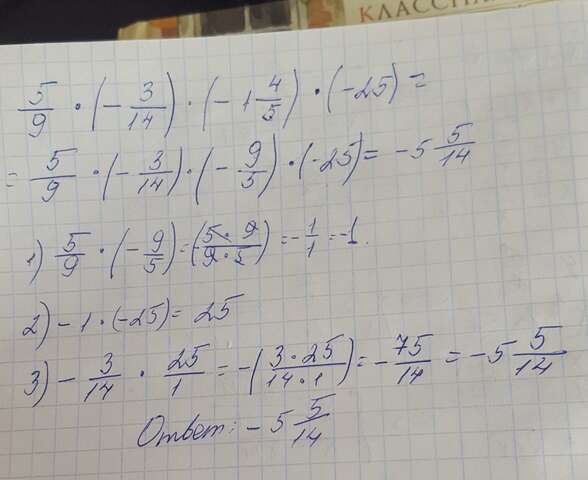 КЛАССНА
5/9 · (- 3/14) · (-1 4/5) · (-25) =
= 5/9 · (- 3/14) · (- 9/5) · (-25) = -5 5/14
1) 5/9 · (- 9/5) = (- 5·9/9·5) = - 1/1 = -1.
2) - 1 · (-25) = 25
3) - 3/14 · 25/1 = -(3·25/14·1) = - 75/14 = -5 5/14
Ответ: -5 5/14